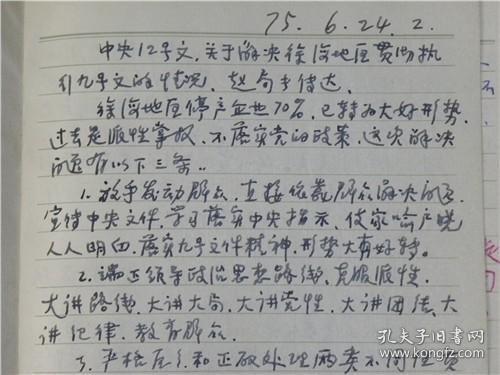 75. 6. 24. 2.
中央12号文,关于解决徐海地区贯彻执
行九号文的情况,赵局长传达。
徐海地区停产企业70%,已转为大好形势,
过去是派性掌权,不落实党的政策,这次解决
问题有以下三条:
1. 放手发动群众,直接依靠群众解决问题,
宣传中央文件,学习落实中央指示,使家喻户晓
人人明白,落实九号文件精神,形势大有好转。
2. 端正领导政治思想路线,克服派性,
大讲路线,大讲大局,大讲党性,大讲团结,大
讲纪律,教育群众。
3. 严格区分和正确处理两类不同性质
孔夫子旧书网
www.kongfz.com